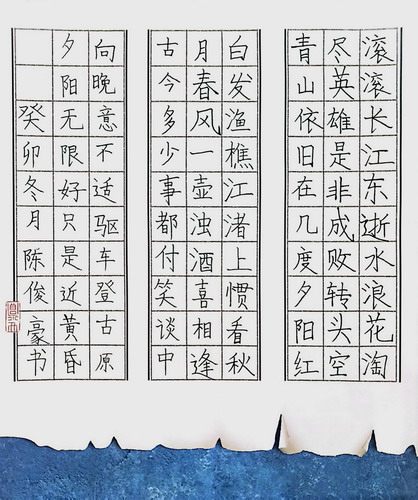 滚滚长江东逝水浪花淘
尽英雄是非成败转头空
青山依旧在几度夕阳红
白发渔樵江渚上惯看秋
月春风一壶浊酒喜相逢
古今多少事都付笑谈中
向晚意不适驱车登古原
夕阳无限好只是近黄昏
癸卯冬月陈俊豪书